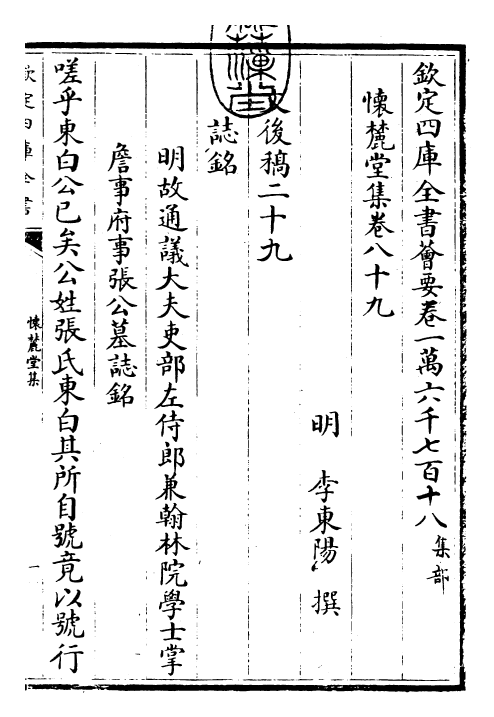 欽定四庫全書薈要卷一萬六千七百十八 集部
懷麓堂集卷八十九
明 李東陽 撰
文後稿二十九
誌銘
明故通議大夫吏部左侍郎兼翰林院學士掌
詹事府事張公墓誌銘
嗟乎東白公已矣公姓張氏東白其所自號竟以號行
欽定四庫全書
懷麓堂集
一